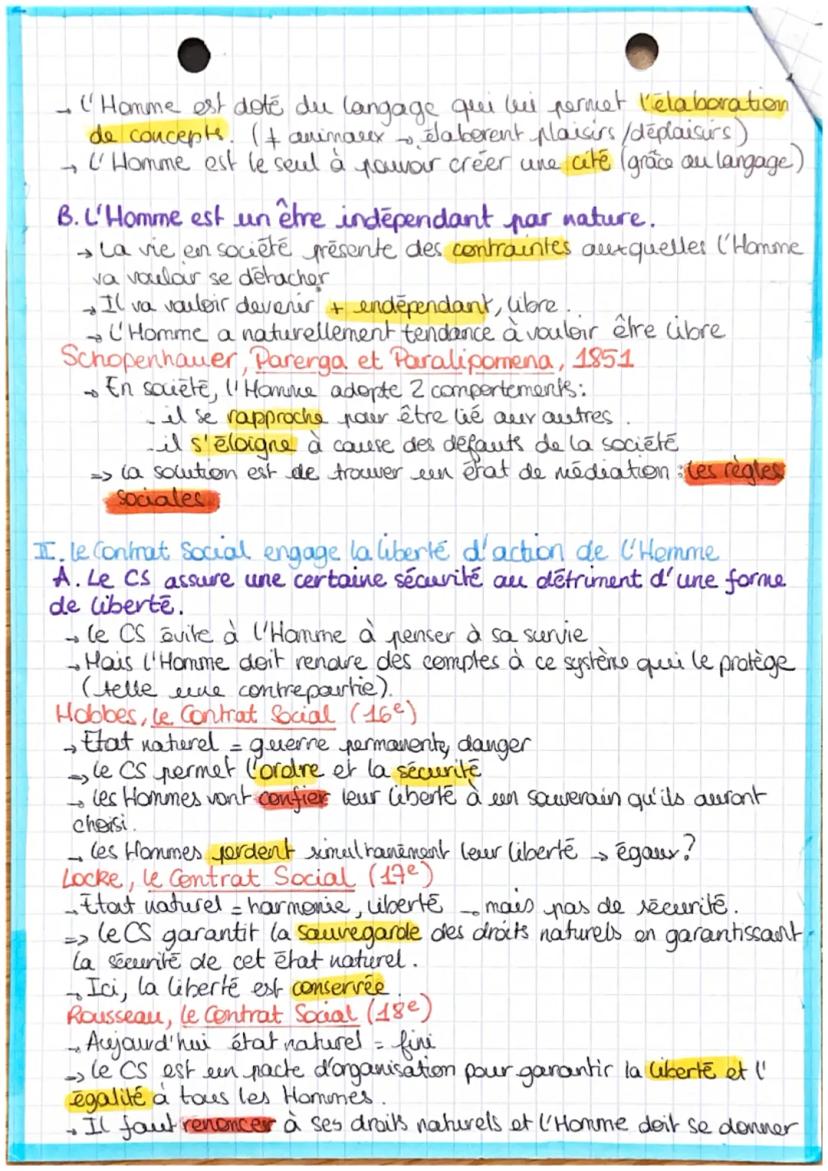 → L'Homme est doté du langage qui lui permet l'élaboration
de concepts. (≠ animaux → élaborent plaisirs/déplaisirs)
→ L'Homme est le seul à pouvoir créer une cité (grâce au langage)
B. L'Homme est un être indépendant par nature.
→ La vie en société présente des contraintes auxquelles l'Homme
va vouloir se détacher
→ Il va vouloir devenir + indépendant, libre.
→ L'Homme a naturellement tendance à vouloir être libre
Schopenhauer, Parerga et Paralipomena, 1851
→ En société, l'Homme adopte 2 comportements:
- il se rapproche pour être lié aux autres.
- il s'éloigne à cause des défauts de la société
=> la solution est de trouver un état de médiation : les règles
sociales
II. Le Contrat Social engage la liberté d'action de l'Homme
A. Le CS assure une certaine sécurité au détriment d'une forme
de liberté.
→ Le CS évite à l'Homme à penser à sa survie
→ Mais l'Homme doit rendre des comptes à ce système qui le protège
(telle une contrepartie).
Hobbes, Le Contrat Social (16e)
→ Etat naturel = guerre permanente, danger
=> Le CS permet l'ordre et la sécurité
→ Les Hommes vont confier leur liberté à un souverain qu'ils auront
choisi.
→ Les Hommes perdent simultanément leur liberté → égaux?
Locke, Le Contrat Social (17e)
→ Etat naturel = harmonie, liberté → mais pas de sécurité.
=> Le CS garantit la sauvegarde des droits naturels en garantissant
la sécurité de cet état naturel.
→ Ici, la liberté est conservée
Rousseau, Le Contrat Social (18e)
→ Aujourd'hui état naturel = fini
=> Le CS est un pacte d'organisation pour garantir la liberté et l'
égalité à tous les Hommes.
→ Il faut renoncer à ses droits naturels et l'Homme doit se donner